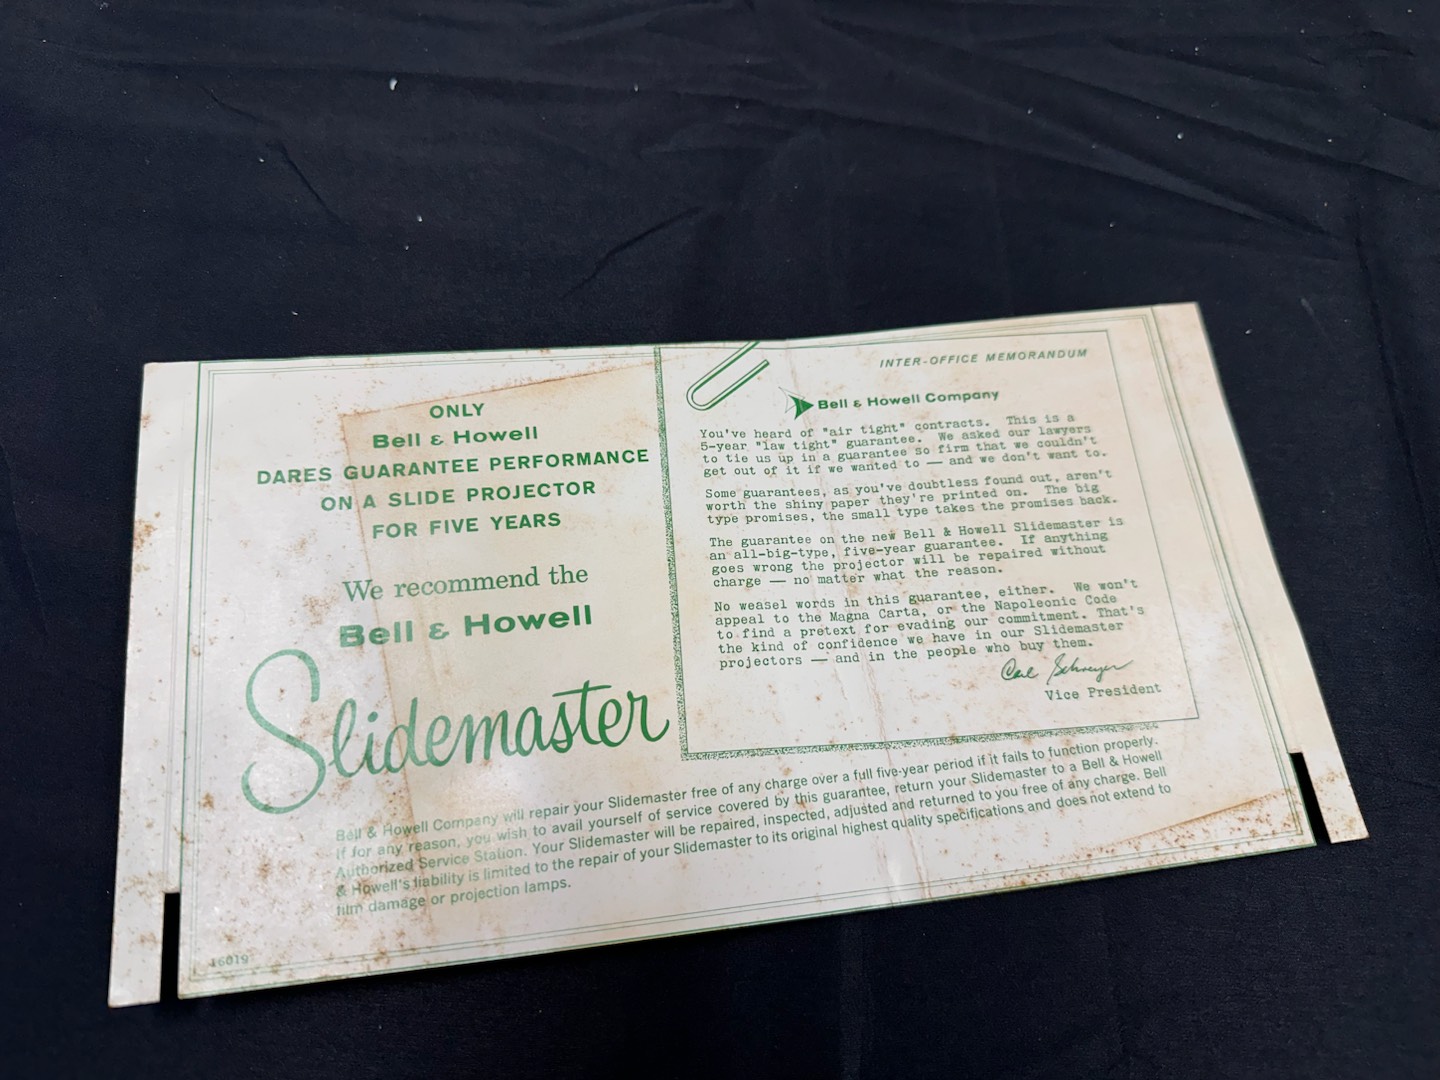 ONLY
Bell & Howell
DARES GUARANTEE PERFORMANCE
ON A SLIDE PROJECTOR
FOR FIVE YEARS
We recommend the
Bell & Howell
Slidemaster
INTER-OFFICE MEMORANDUM
Bell & Howell Company
You've heard of "air tight" contracts. This is a
5-year "law tight" guarantee. We asked our lawyers
to tie us up in a guarantee so firm that we couldn't
get out of it if we wanted to — and we don't want to.
Some guarantees, as you've doubtless found out, aren't
worth the shiny paper they're printed on. The big
type promises, the small type takes the promises back.
The guarantee on the new Bell & Howell Slidemaster is
an all-big-type, five-year guarantee. If anything
goes wrong the projector will be repaired without
charge — no matter what the reason.
No weasel words in this guarantee, either. We won't
appeal to the Magna Carta, or the Napoleonic Code
to find a pretext for evading our commitment. That's
the kind of confidence we have in our Slidemaster
projectors — and in the people who buy them.
Carl Schreyer
Vice President
Bell & Howell Company will repair your Slidemaster free of any charge over a full five-year period if it fails to function properly.
If for any reason, you wish to avail yourself of service covered by this guarantee, return your Slidemaster to a Bell & Howell
Authorized Service Station. Your Slidemaster will be repaired, inspected, adjusted and returned to you free of any charge. Bell
& Howell's liability is limited to the repair of your Slidemaster to its original highest quality specifications and does not extend to
film damage or projection lamps.
16019